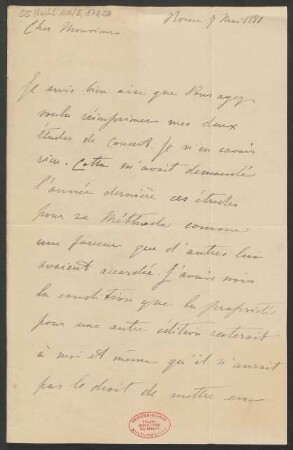 Rome 9 Mai 1881
Cher Monsieur
Je suis bien aise que Vous ayez
voulu réimprimer mes deux
études de Concert je n'en savais
rien. Cotta m'avait demandé
l'année dernière ces études
pour sa Méthode comme
une faveur que d'autres lui
avaient accordée. J'avais mis
la condition que la propriété
pour une autre édition resterait
à moi et même qu'il n'aurait
pas le droit de mettre en